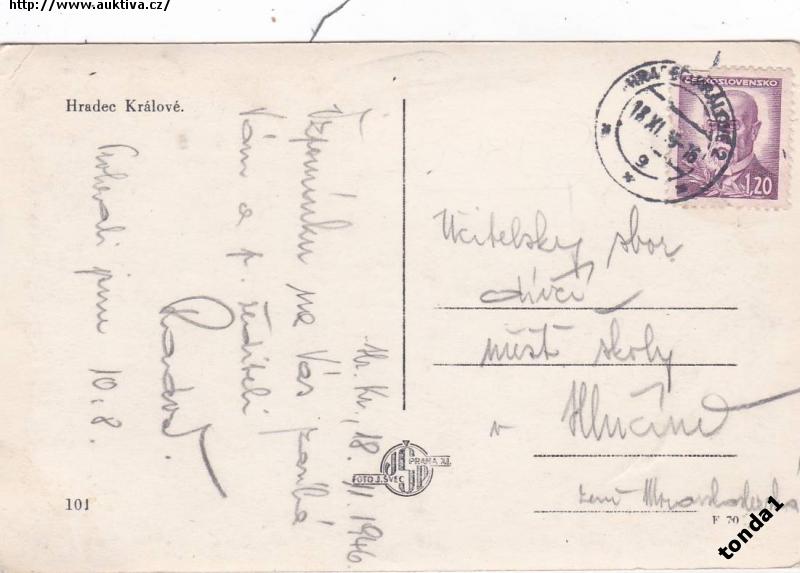 http://www.auktiva.cz/
Hradec Králové.
Hr. Kr., 18. XI. 1946.
Vzpomínku na Vás
Vám a p. řediteli
jsem 10. 8.
101
HRADEC KRÁLOVÉ 2
18.XI. 9
ČESKOSLOVENSKO
1,20
Učitelský sbor
dívčí
měšť. školy
v Hlučíně
země Moravskoslezská
FOTO J. ŠVEC PRAHA XI.
F 70
tonda1